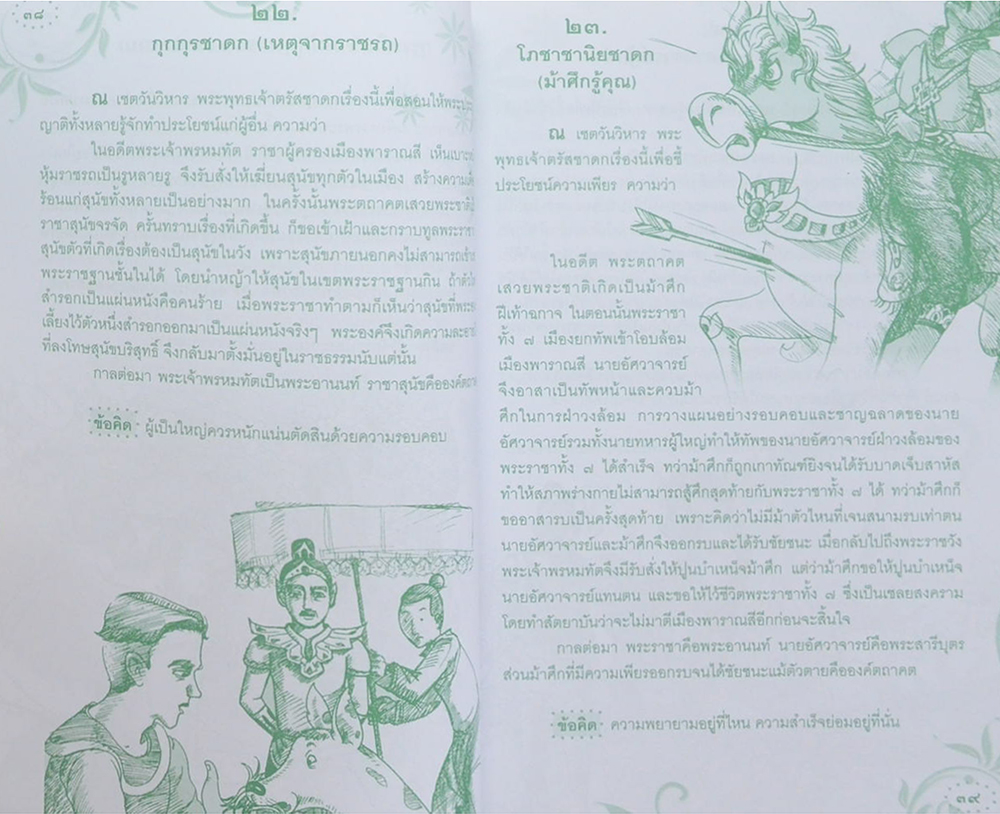 ๓๘
๒๒.
กุกกุรชาดก (เหตุจากราชรถ)
ณ เชตวันวิหาร พระพุทธเจ้าตรัสชาดกเรื่องนี้เพื่อสอนให้พระ
ญาติทั้งหลายรู้จักทำประโยชน์แก่ผู้อื่น ความว่า
ในอดีตพระเจ้าพรหมทัต ราชาผู้ครองเมืองพาราณสี เห็นเบาะ
หุ้มราชรถเป็นรูหลายรู จึงรับสั่งให้เฆี่ยนสุนัขทุกตัวในเมือง สร้างความ
ร้อนแก่สุนัขทั้งหลายเป็นอย่างมาก ในครั้งนั้นพระตถาคตเสวยพระชาติ
ราชาสุนัขจรจัด ครั้นทราบเรื่องที่เกิดขึ้น ก็ขอเข้าเฝ้าและกราบทูลพระราชา
สุนัขตัวที่เกิดเรื่องต้องเป็นสุนัขในวัง เพราะสุนัขภายนอกคงไม่สามารถเข้า
พระราชฐานชั้นในได้ โดยนำหญ้าให้สุนัขในเขตพระราชฐานกิน ถ้าตัว
สำรอกเป็นแผ่นหนังคือคนร้าย เมื่อพระราชาทำตามก็เห็นว่าสุนัขที่
เลี้ยงไว้ตัวหนึ่งสำรอกออกมาเป็นแผ่นหนังจริงๆ พระองค์จึงเกิดความ
ที่ลงโทษสุนัขบริสุทธิ์ จึงกลับมาตั้งมั่นอยู่ในราชธรรมนับแต่นั้น
กาลต่อมา พระเจ้าพรหมทัตเป็นพระอานนท์ ราชาสุนัขคือองค์
ข้อคิด ผู้เป็นใหญ่ควรหนักแน่นตัดสินด้วยความรอบคอบ
๒๓.
โภชาชานิยชาดก
(ม้าศึกรู้คุณ)
ณ เชตวันวิหาร พระ
พุทธเจ้าตรัสชาดกเรื่องนี้เพื่อชี้
ประโยชน์ความเพียร ความว่า
ในอดีต พระตถาคต
เสวยพระชาติเกิดเป็นม้าศึก
ฝีเท้าฉกาจ ในตอนนั้นพระราชา
ทั้ง ๗ เมืองยกทัพเข้าโอบล้อม
เมืองพาราณสี นายอัศวาจารย์
จึงอาสาเป็นทัพหน้าและควบม้า
ศึกในการฝ่าวงล้อม การวางแผนอย่างรอบคอบและชาญฉลาดของนาย
อัศวาจารย์รวมทั้งนายทหารผู้ใหญ่ทำให้ทัพของนายอัศวาจารย์ฝ่าวงล้อมของ
พระราชาทั้ง ๗ ได้สำเร็จ ทว่าม้าศึกก็ถูกเกาทัณฑ์ยิงจนได้รับบาดเจ็บสาหัส
ทำให้สภาพร่างกายไม่สามารถสู้ศึกสุดท้ายกับพระราชาทั้ง ๗ ได้ ทว่าม้าศึกก็
ขออาสารบเป็นครั้งสุดท้าย เพราะคิดว่าไม่มีม้าตัวไหนที่เจนสนามรบเท่าตน
นายอัศวาจารย์และม้าศึกจึงออกรบและได้รับชัยชนะ เมื่อกลับไปถึงพระราชวัง
พระเจ้าพรหมทัตจึงมีรับสั่งให้ปูนบำเหน็จม้าศึก แต่ว่าม้าศึกขอให้ปูนบำเหน็จ
นายอัศวาจารย์แทนตน และขอให้ไว้ชีวิตพระราชาทั้ง ๗ ซึ่งเป็นเชลยสงคราม
โดยทำสัตยาบันว่าจะไม่มาตีเมืองพาราณสีอีกก่อนจะสิ้นใจ
กาลต่อมา พระราชาคือพระอานนท์ นายอัศวาจารย์คือพระสารีบุตร
ส่วนม้าศึกที่มีความเพียรออกรบจนได้ชัยชนะแม้ตัวตายคือองค์ตถาคต
ข้อคิด ความพยายามอยู่ที่ไหน ความสำเร็จย่อมอยู่ที่นั่น
๓๙